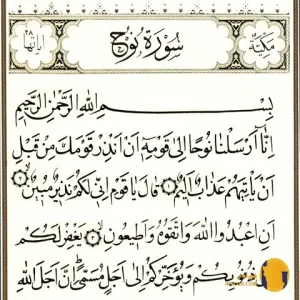 مكية سورة نوح آياتها ٢٨
بسم الله الرحمن الرحيم
إنا أرسلنا نوحا إلى قومه أن أنذر قومك من قبل
أن يأتيهم عذاب أليم ١ قال يا قوم إني لكم نذير مبين ٢
أن اعبدوا الله واتقوه وأطيعون ٣ يغفر لكم
ذنوبكم ويؤخركم إلى أجل مسمى إن أجل الله